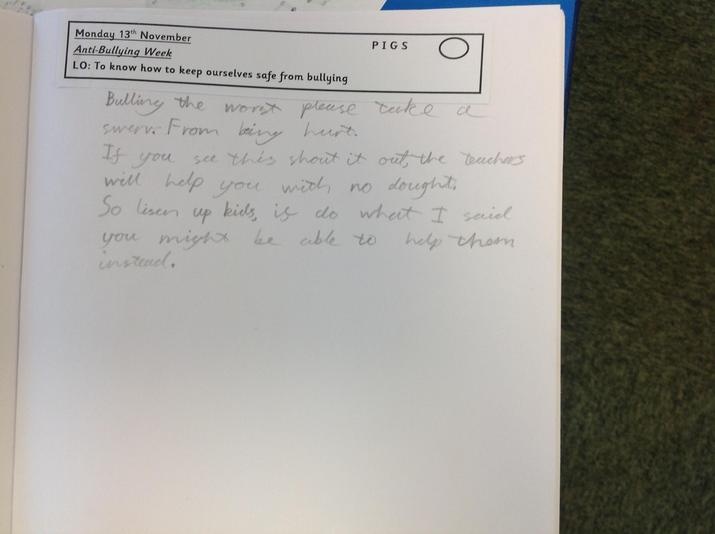 Monday 13th November
PIGS
Anti-Bullying Week
LO: To know how to keep ourselves safe from bullying
Bulling the worst please take a
swerv. From being hurt.
If you see this shout it out, the teachers
will help you with no dought.
So lisen up kids, is do what I said
you might be able to help them
instead.